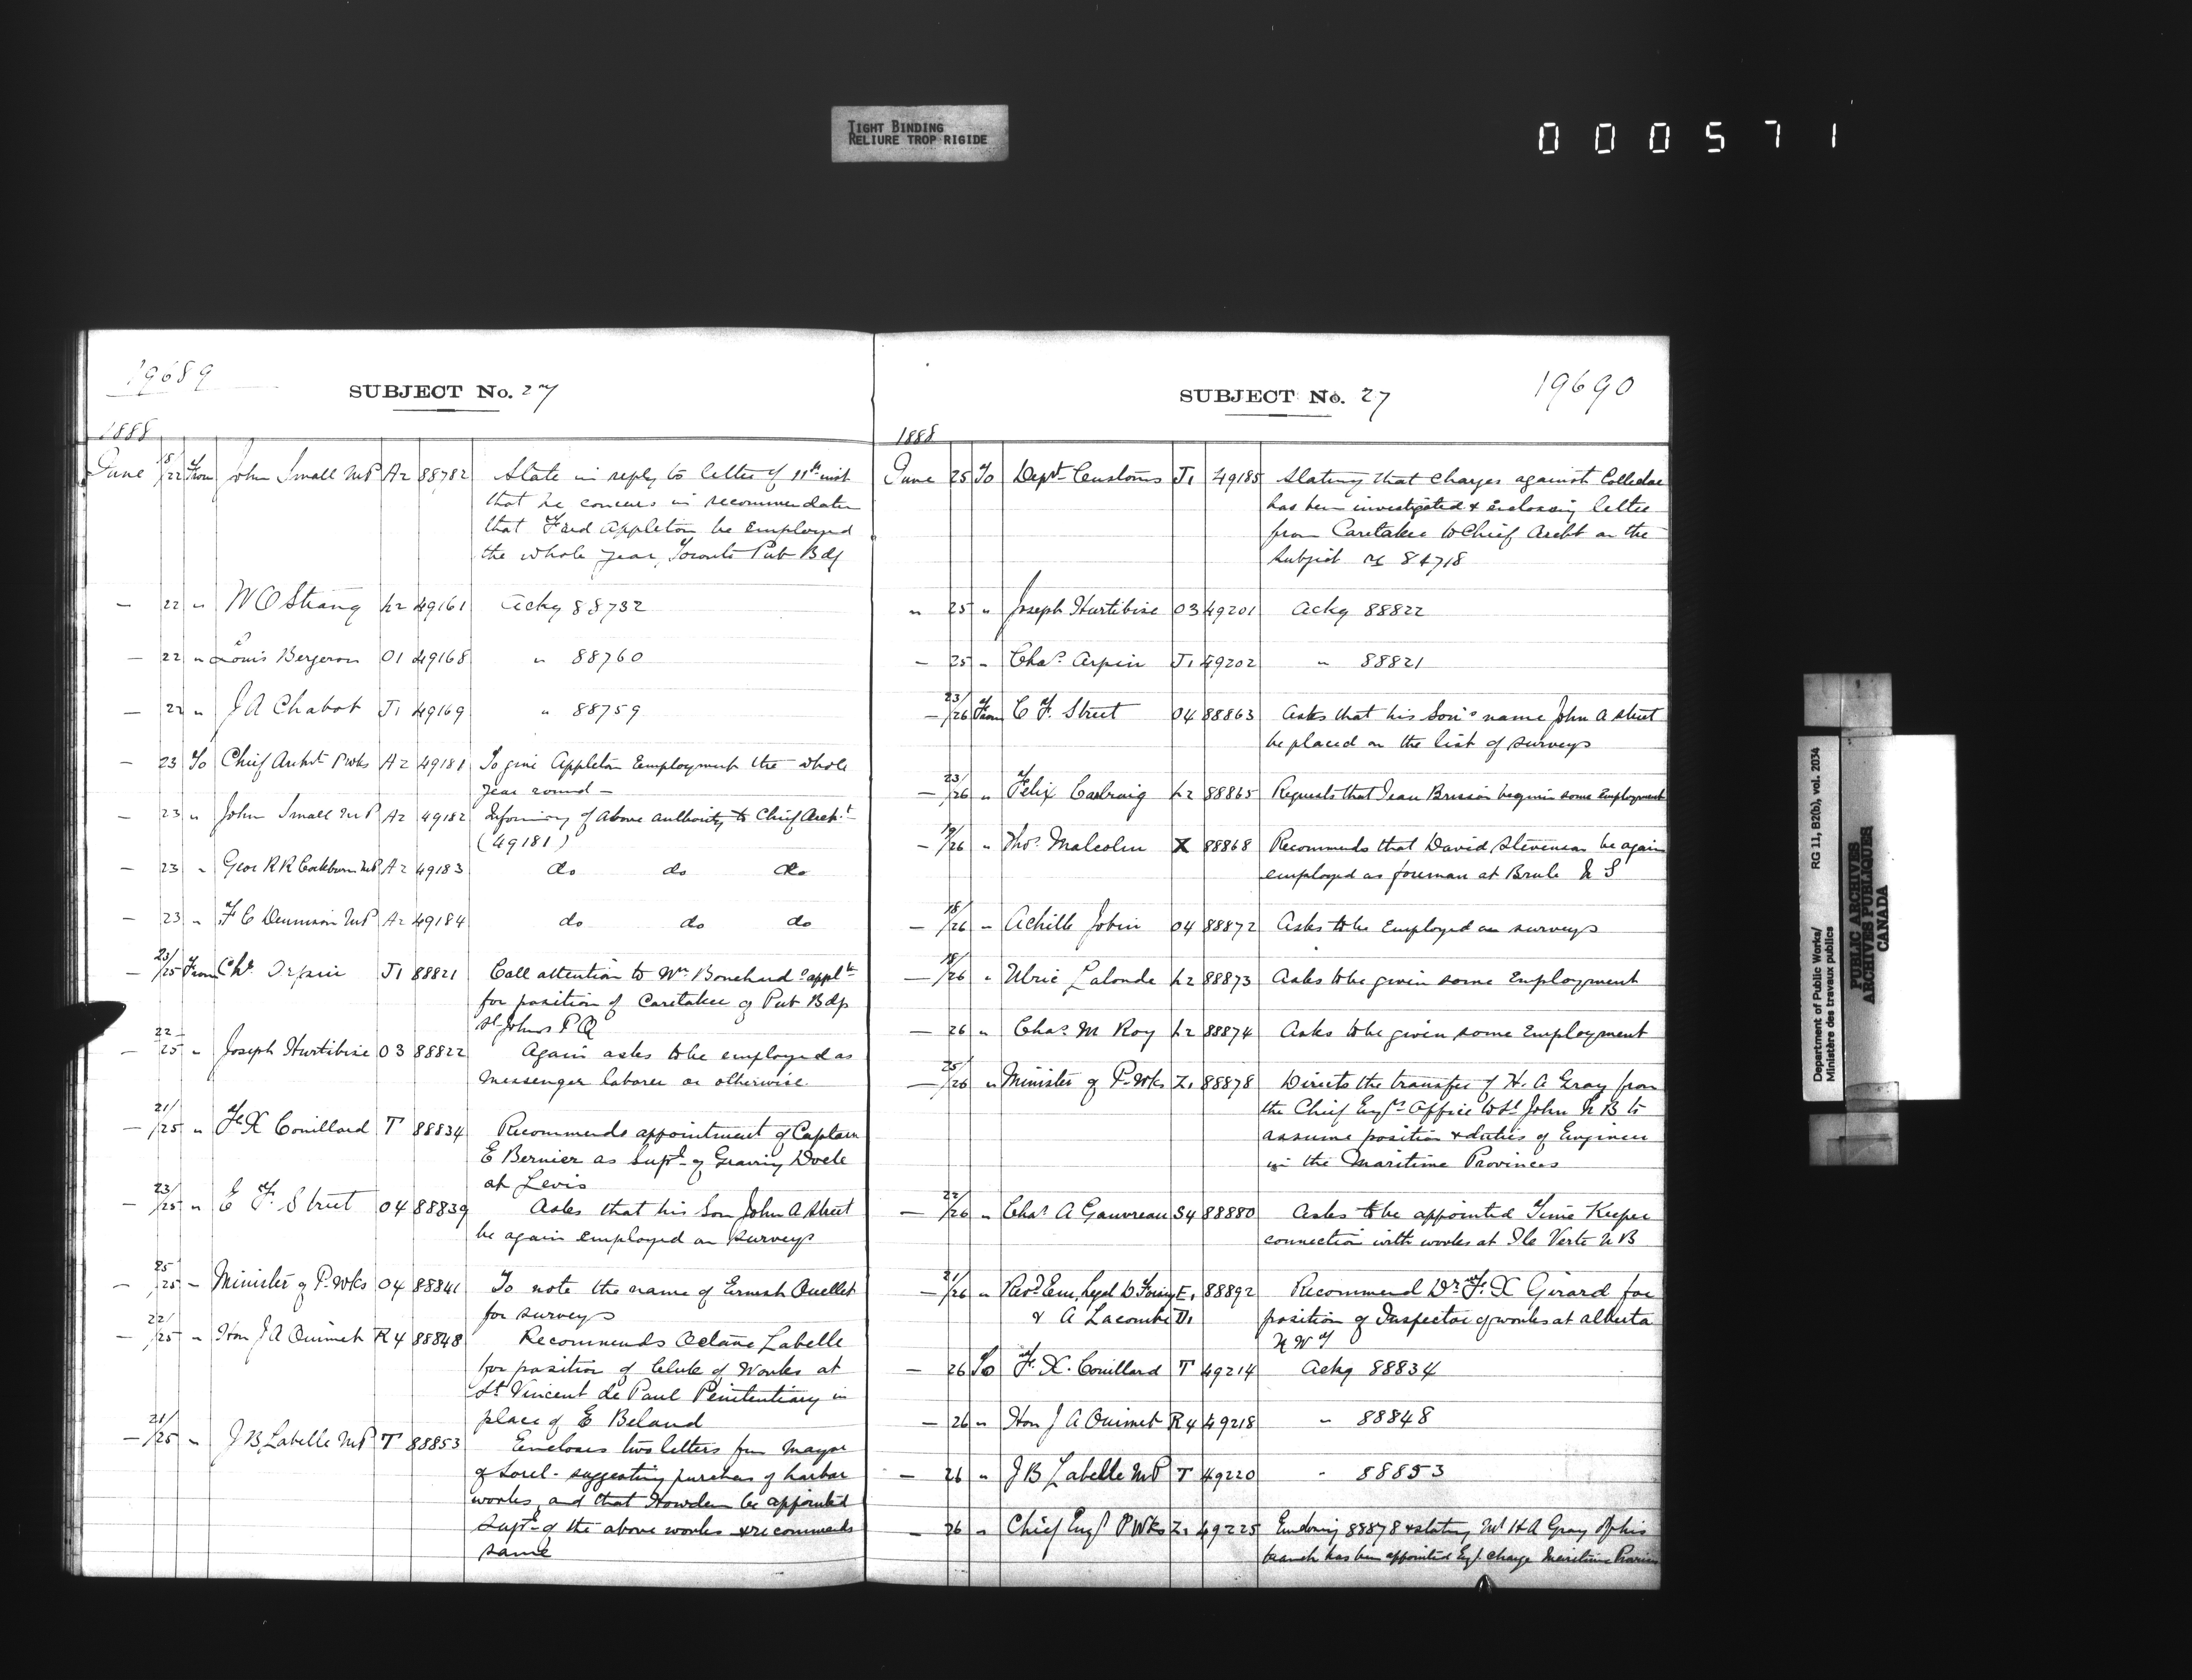 TIGHT BINDING
RELIURE TROP RIGIDE
000571
19689
SUBJECT No. 27
1888
June 18/22 From John Small MP A2 88782 State in reply to letter of 11th inst
that he concurs in recommendation
that Fred Appleton be employed
the whole year, Toronto Pub Bdg
— 22 " W O Strang L2 49161 Ackg 88732
— 22 " Louis Bergeron O1 49168 " 88760
— 22 " J A Chabot J1 49169 " 88759
— 23 To Chief Archt P Wks A2 49181 To give Appleton Employment the whole
year round —
— 23 " John Small MP A2 49182 Informing of above authority to Chief Archt
(49181)
— 23 " Geo R R Cockburn MP A2 49183 do do do
— 23 " F C Dennison MP A2 49184 do do do
— 23/25 From Chs Arpin J1 88821 Call attention to Wm Bouchard's applt
for position of Caretaker of Pub Bdg
St Johns P Q
— 22/25 " Joseph Hurtibise O3 88822 Again asks to be employed as
messenger laborer or otherwise
— 21/25 " F X Couillard T 88834 Recommends appointment of Captain
E Bernier as Supt of Graving Dock
at Levis
— 23/25 " C F Street O4 88839 Asks that his Son John A Street
be again employed on surveys
— 25/25 " Minister of P. Wks O4 88841 To note the name of Ernest Ouellet
for surveys
— 22/25 " Hon J A Ouimet R4 88848 Recommends Octave Labelle
for position of Clerk of Works at
St Vincent de Paul Penitentiary in
place of E Beland
— 21/25 " J B Labelle MP T 88853 Encloses two letters from Mayor
of Sorel - suggesting purchase of harbor
works, and that Howden be appointed
Supt of the above works & recommends
same
SUBJECT No. 27
19690
1888
June 25 To Dept Customs J1 49185 Stating that charges against Colledge
has been investigated & enclosing letter
from Caretaker to Chief Archt on the
subject re 84718
" 25 " Joseph Hurtibise O3 49201 Ackg 88822
— 25 " Chas. Arpin J1 49202 " 88821
— 23/26 From C F. Street O4 88863 Asks that his Son's name John A Street
be placed on the list of surveys
— 23/26 " Felix L2 88865 Requests that Jean Brisson be given some Employment
— 19/26 " Thos. Malcolm X 88868 Recommends that David Stevenson be again
employed as foreman at Brule N S
— 18/26 " Achille Jobin O4 88872 Asks to be Employed on surveys
— 18/26 " Ulric Lalonde L2 88873 Asks to be given some Employment
— 26 " Chas. M Roy L2 88874 Asks to be given some Employment
— 25/26 " Minister of P. Wks Z1 88878 Directs the transfer of H. A Gray from
the Chief Engrs Office to St John N B to
assume position & duties of Engineer
in the Maritime Provinces
— 22/26 " Chas A Gauvreau S4 88880 Asks to be appointed Time Keeper
connection with works at Ile Verte N B
— 21/26 " Revd Em, Legal E1 88892 Recommend Dr. F. X Girard for
& A Lacombe D1 position of Inspector of works at Alberta
N W T
— 26 To F. X. Couillard T 49214 Ackg 88834
— 26 " Hon J A Ouimet R4 49218 " 88848
— 26 " J B Labelle MP T 49220 " 88853
— 26 " Chief Engr P Wks Z1 49225 Enclosing 88878 & stating Mr H A Gray of his
branch has been appointed Engr charge Maritime Provinces
RG 11, B2(b), vol. 2034
Department of Public Works/
Ministère des travaux publics
PUBLIC ARCHIVES
ARCHIVES PUBLIQUES
CANADA